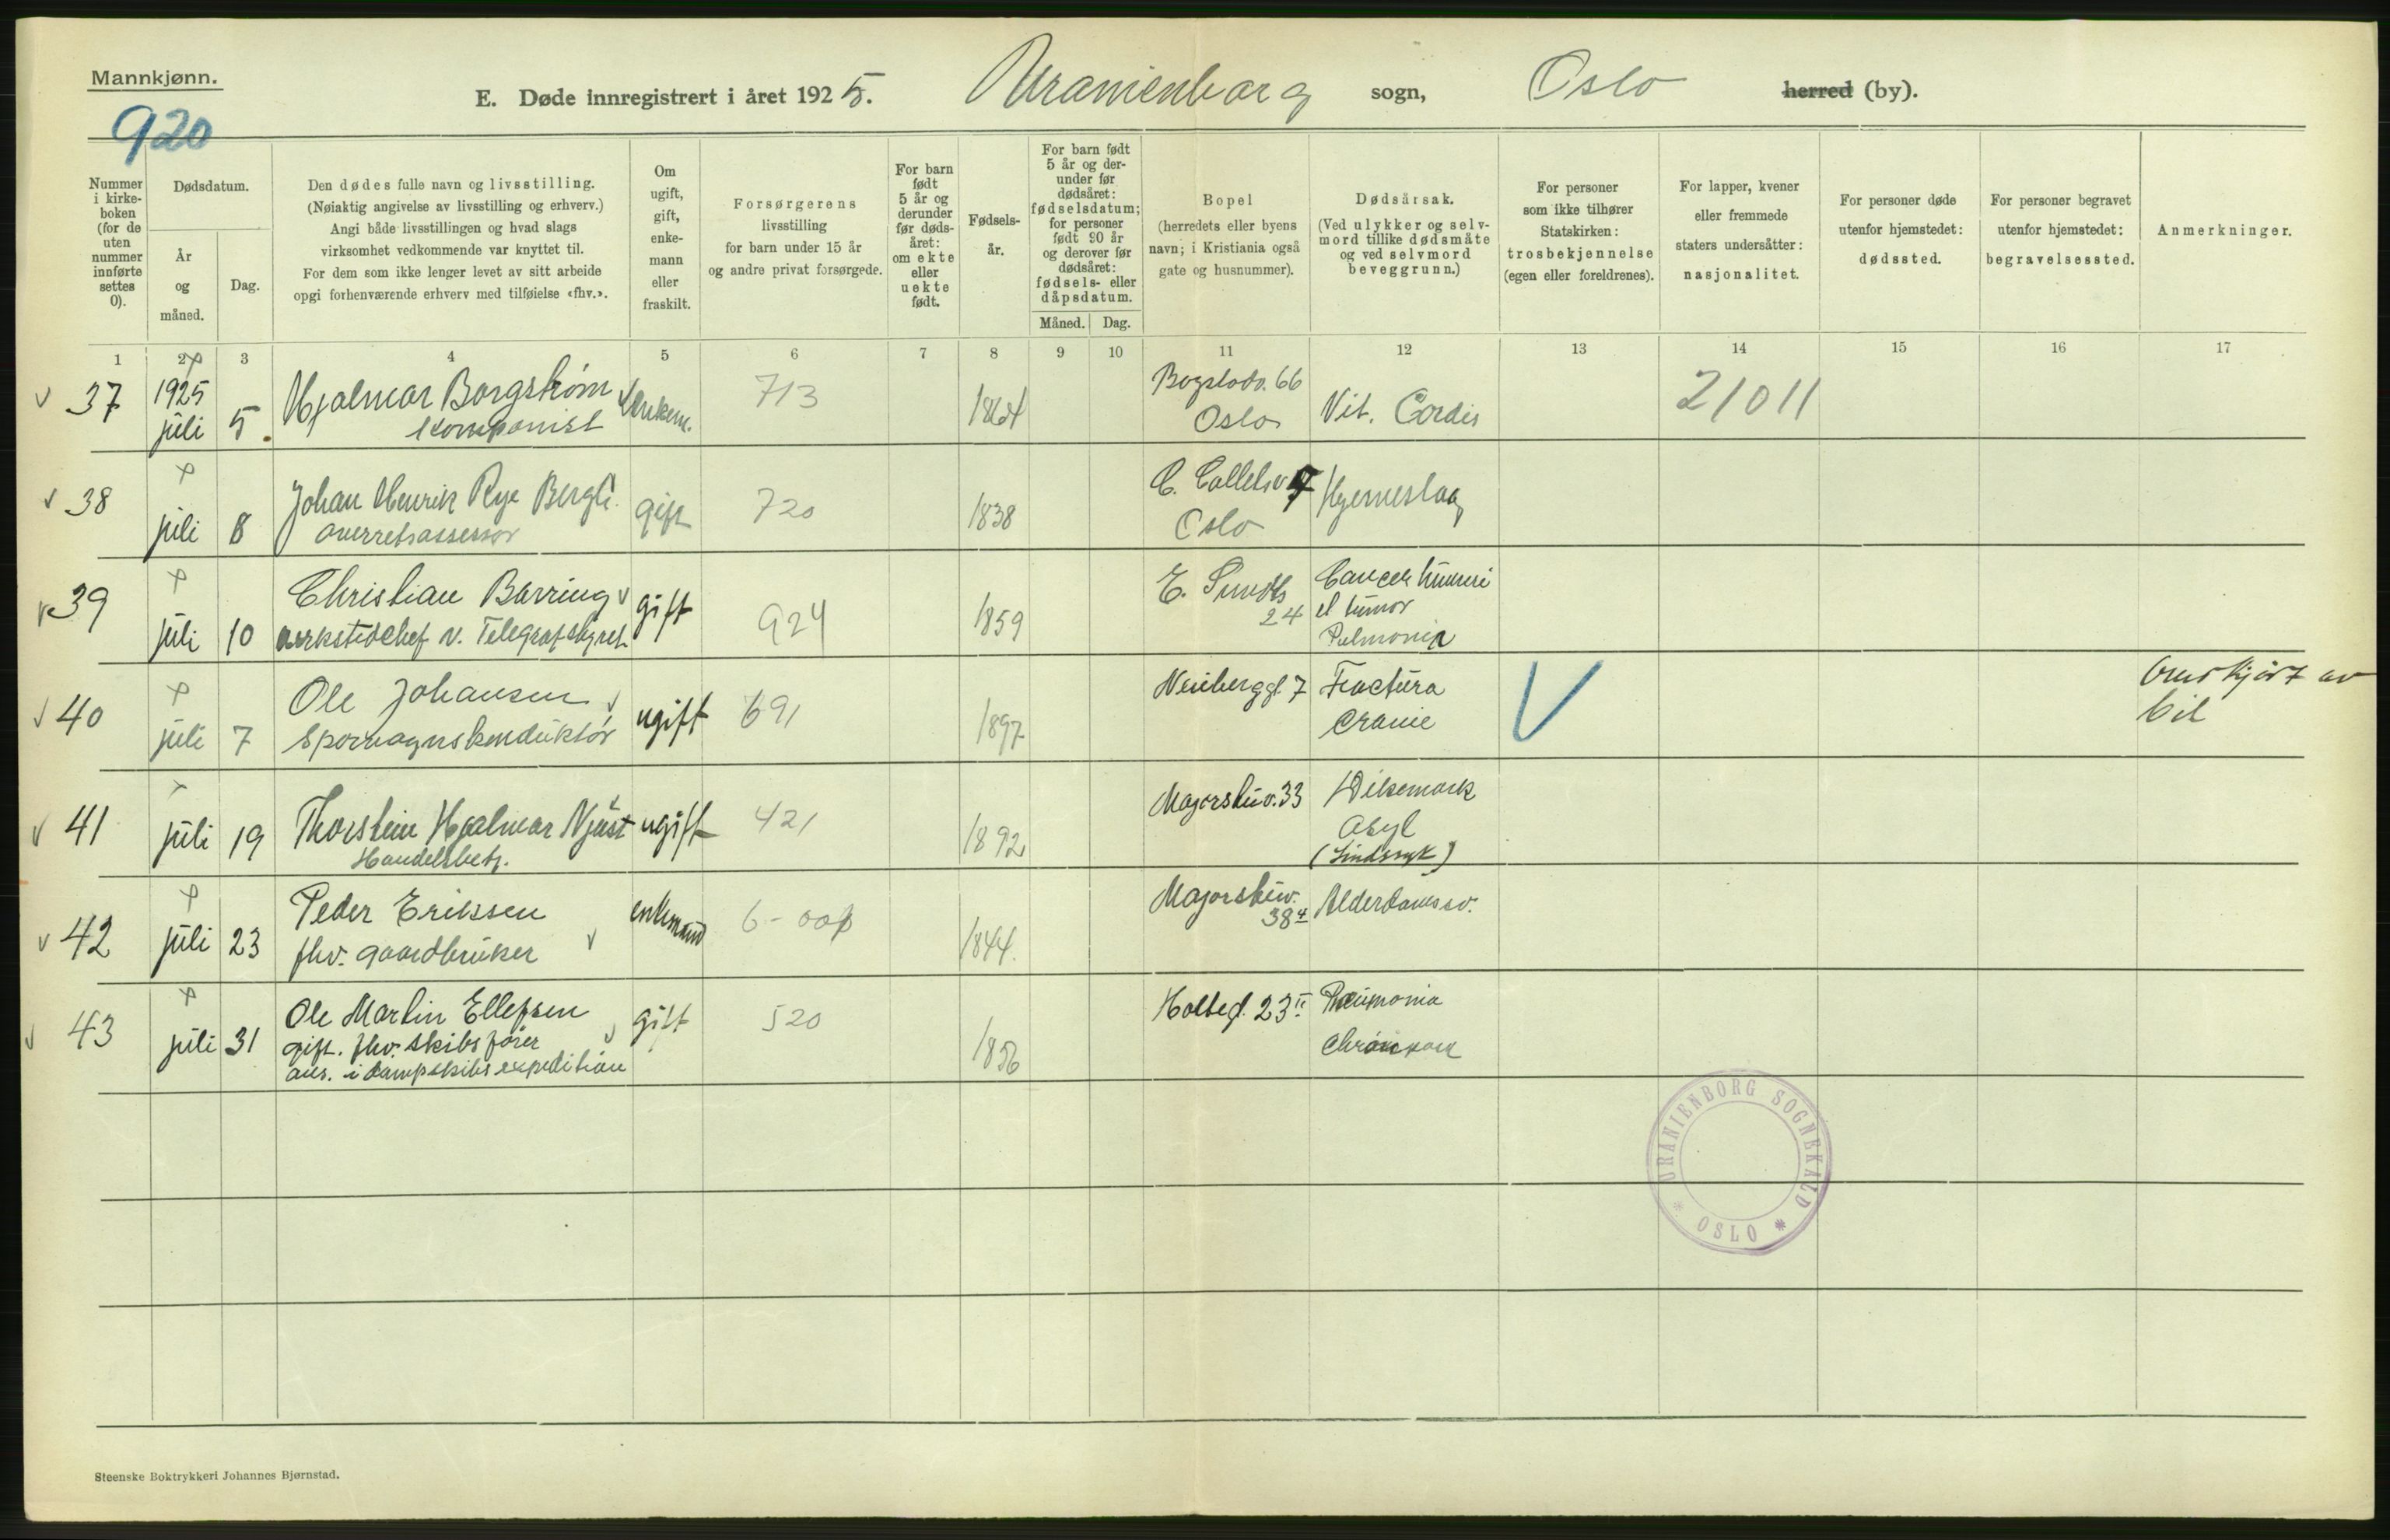 Mannkjønn.
920
E. Døde innregistrert i året 1925. Uranienborg sogn, Oslo herred (by).
Nummer i kirke- boken (for de uten nummer innførte settes 0).
Dødsdatum.
År og måned.
Dag.
Den dødes fulle navn og livsstilling.
(Nøiaktig angivelse av livsstilling og erhverv.)
Angi både livsstillingen og hvad slags
virksomhet vedkommende var knyttet til.
For dem som ikke lenger levet av sitt arbeide
opgi forhenværende erhverv med tilføielse «fhv.».
Om ugift, gift, enke- mann eller fraskilt.
Forsørgerens
livsstilling
for barn under 15 år
og andre privat forsørgede.
For barn født 5 år og derunder før døds- året: om ekte eller uekte født.
Fødsels- år.
For barn født 5 år og der- under før dødsåret: fødselsdatum; for personer født 90 år og derover før dødsåret: fødsels- eller dåpsdatum.
Måned. Dag.
Bopel
(herredets eller byens
navn; i Kristiania også
gate og husnummer).
Dødsårsak.
(Ved ulykker og selv-
mord tillike dødsmåte
og ved selvmord
beveggrunn.)
For personer
som ikke tilhører
Statskirken:
trosbekjennelse
(egen eller foreldrenes).
For lapper, kvener
eller fremmede
staters undersåtter:
nasjonalitet.
For personer døde
utenfor hjemstedet:
dødssted.
For personer begravet
utenfor hjemstedet:
begravelsessted.
Anmerkninger.
1 2 3 4 5 6 7 8 9 10 11 12 13 14 15 16 17
37 1925 juli 5. Hjalmar Borgstrøm enkem. 713 1864 Bogstadv. 66 Vit. Cordis 21011
komponist Oslo
38 juli 8 Johan Henrik Rye Bergh. gift 720 1838 C. Colletsv 7 Hjerneslag
overretsassessor Oslo
39 juli 10 Christian Barring gift 924 1859 E. Sundts 24 Cancer humeri
verkstedchef v. Telegrafstyret et tumor
Pulmonis
40 juli 7 Ole Johansen ugift 691 1897 Neuberggt. 7 Fractura overkjørt av
Sporvagnskonduktør Cranie bil
41 juli 19 Thorstein Hjalmar Njust ugift 421 1892 Majorstuv. 33 Dikemark
Handelsbetj. Asyl
(Sindssyk)
42 juli 23 Peder Eriksen enkemand 6-00f 1844. Majorstuv. 38 4 Alderdomssv.
fhv. gaardbruker
43 juli 31 Ole Martin Ellefsen gift 520 1856 Holteg. 23 II Pneumonia
gift. fhv. skibsfører
ans. i dampskibsexpedition
URANIENBORG SOGNEKALD * OSLO *
Steenske Boktrykkeri Johannes Bjørnstad.